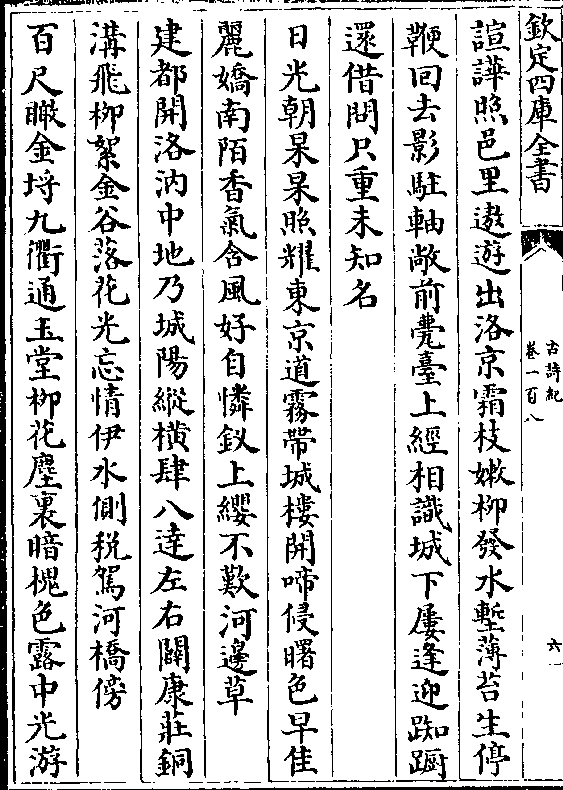 欽定四庫全書
古詩紀
卷一百八
六
諠譁照邑里遨遊出洛京霜枝嫩柳發水塹薄苔生停
鞭回去影駐軸敞前甍臺上經相識城下屢逢迎踟蹰
還借問只重未知名
日光朝杲杲照耀東京道霧帶城樓開啼侵曙色早佳
麗嬌南陌香氣含風好自憐釵上纓不歎河邊草
建都開洛汭中地乃城陽縱橫肆八達左右闢康莊銅
溝飛柳絮金谷落花光忘情伊水側稅駕河橋傍
百尺瞰金埒九衢通玉堂柳花塵裏暗槐色露中光游